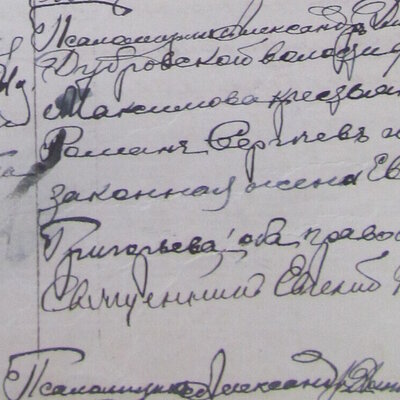 Псаломщикъ Александръ
Дубровской волости
Максимова крестьян
Романъ Сергѣевъ и
законная жена Ев
Григорьева, оба право
Священникъ Евгений
Псаломщикъ Александръ